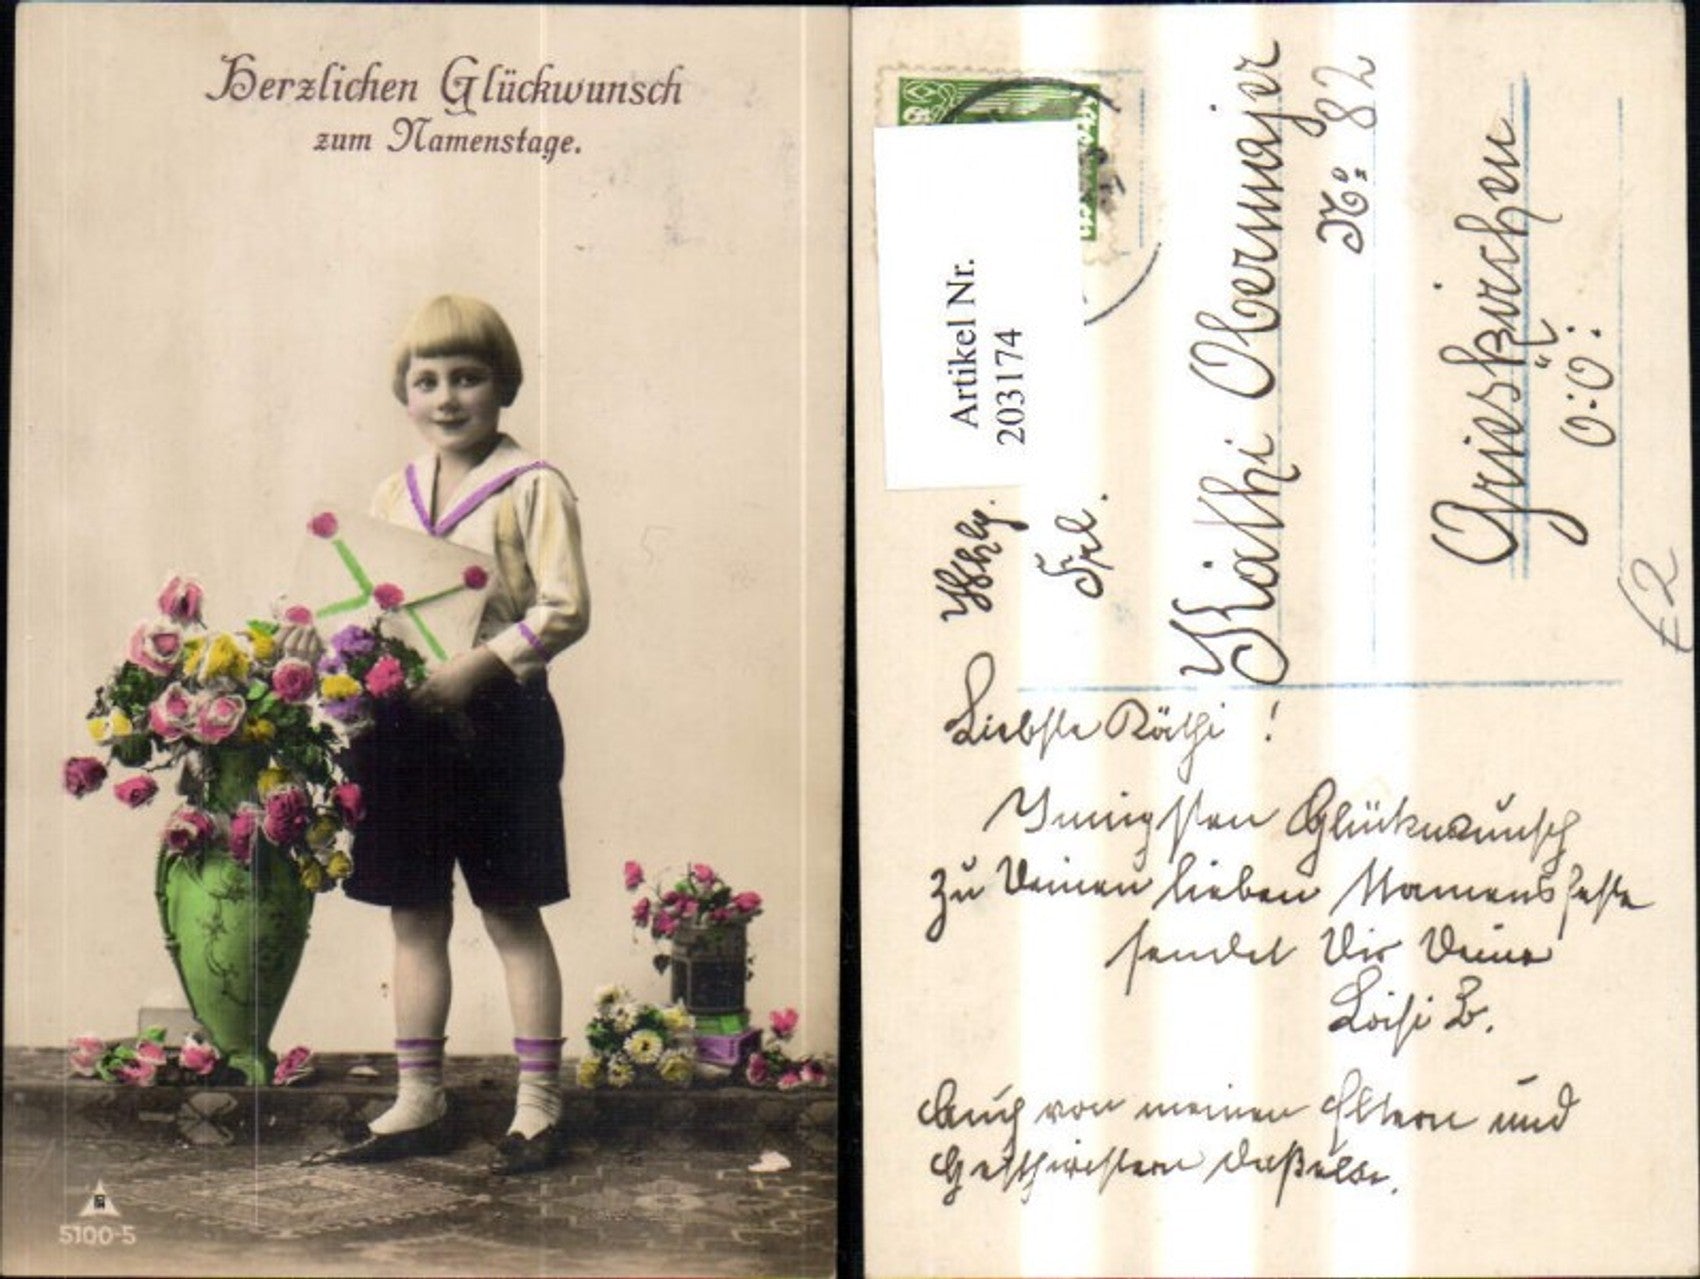 Herzlichen Glückwunsch
zum Namenstage.
5100-5
Artikel Nr.
203174
Frl.
Käthi Obermajer
No: 82
Grieskirchen
O:Ö:
Liebste Käthi!
Innigsten Glückwunsch
zu Deinen lieben Namensfeste
sendet Dir Deine
Loisi B.
Auch von meinen Eltern und
Geschwistern daßelbe.